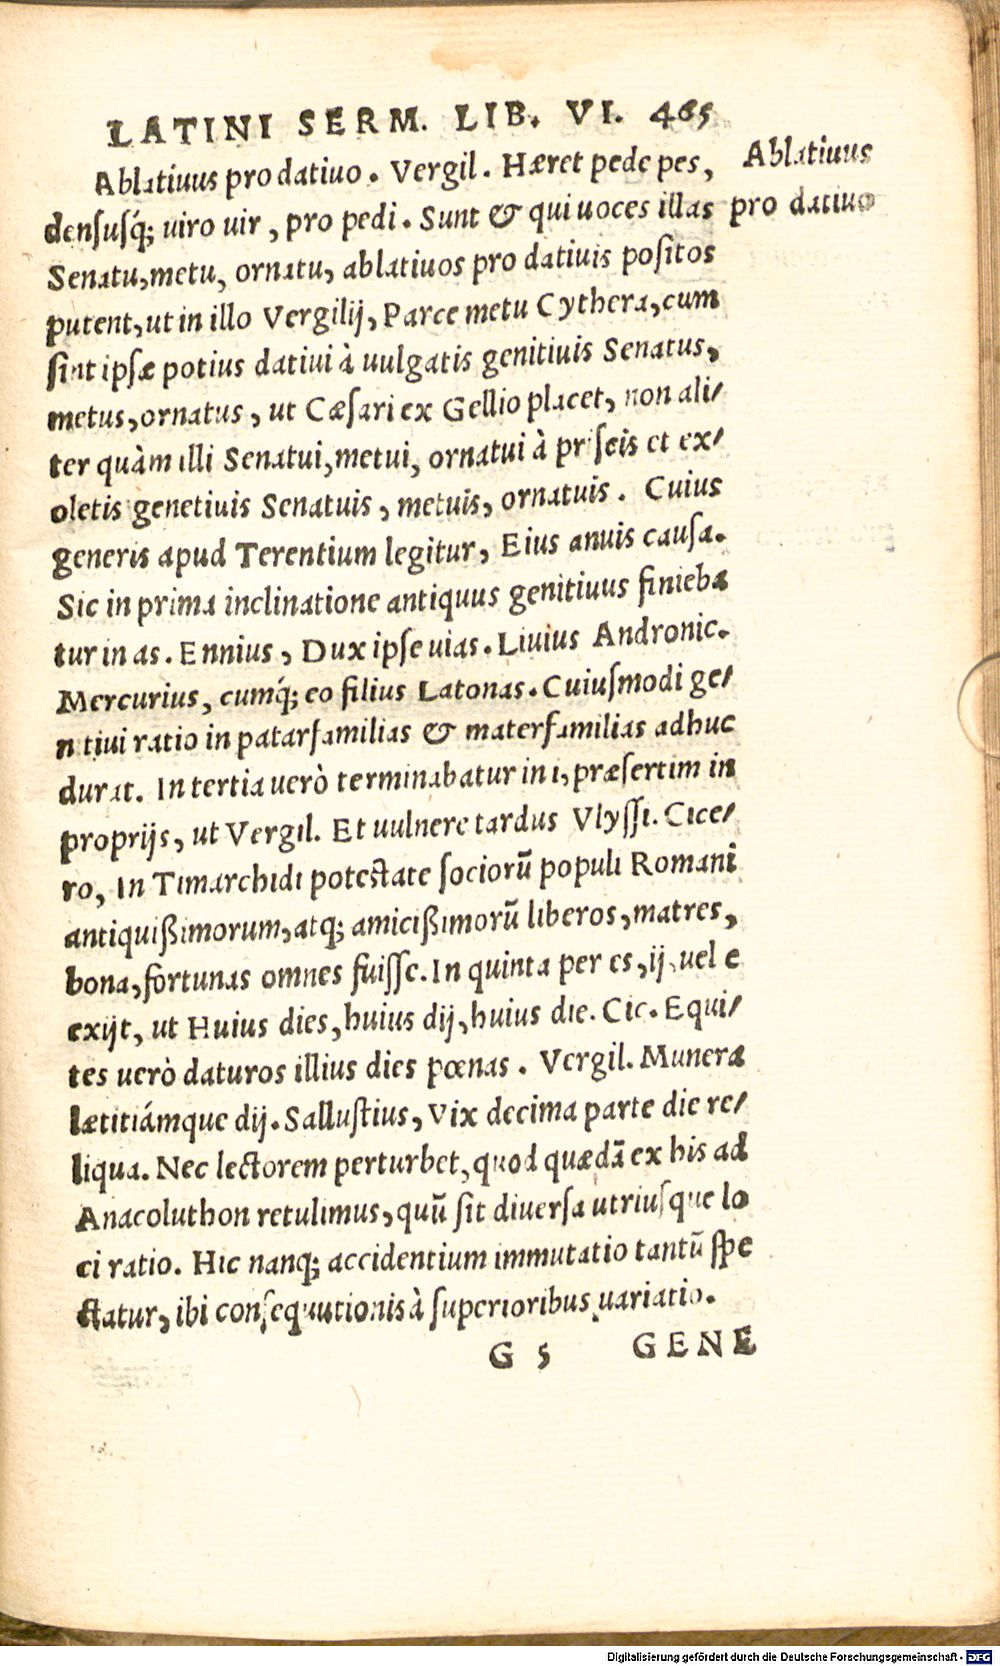 LATINI SERM. LIB. VI. 465
Ablatiuus pro datiuo. Vergil. Hæret pede pes,
Ablatiuus
densusq́; uiro uir, pro pedi. Sunt & qui uoces illas
pro datiuo
Senatu, metu, ornatu, ablatiuos pro datiuis positos
putent, ut in illo Vergilij, Parce metu Cythera, cum
sint ipsæ potius datiui à uulgatis genitiuis Senatus,
metus, ornatus, ut Cæsari ex Gellio placet, non ali/
ter quàm illi Senatui, metui, ornatui à priscis et ex/
oletis genetiuis Senatuis, metuis, ornatuis. Cuius
generis apud Terentium legitur, Eius anuis causa.
Sic in prima inclinatione antiquus genitiuus finieba
tur in as. Ennius, Dux ipse uias. Liuius Andronic.
Mercurius, cumq́; eo filius Latonas. Cuiusmodi ge/
n tiui ratio in patarfamilias & materfamilias adhuc
durat. In tertia uerò terminabatur in i, præsertim in
proprijs, ut Vergil. Et uulnere tardus Vlyssi. Cice/
ro, In Timarchidi potestate sociorū populi Romani
antiquißimorum, atq; amicißimorū liberos, matres,
bona, fortunas omnes fuisse. In quinta per es, ij, uel e
exijt, ut Huius dies, huius dij, huius die. Cic. Equi/
tes uerò daturos illius dies pœnas. Vergil. Munera
lætitiámque dij. Sallustius, Vix decima parte die re/
liqua. Nec lectorem perturbet, quod quædā ex his ad
Anacoluthon retulimus, quū sit diuersa utriusque lo
ci ratio. Hic nanq; accidentium immutatio tantū spe
ctatur, ibi consequutionis à superioribus uariatio.
G 5 GENE
Digitalisierung gefördert durch die Deutsche Forschungsgemeinschaft - DFG